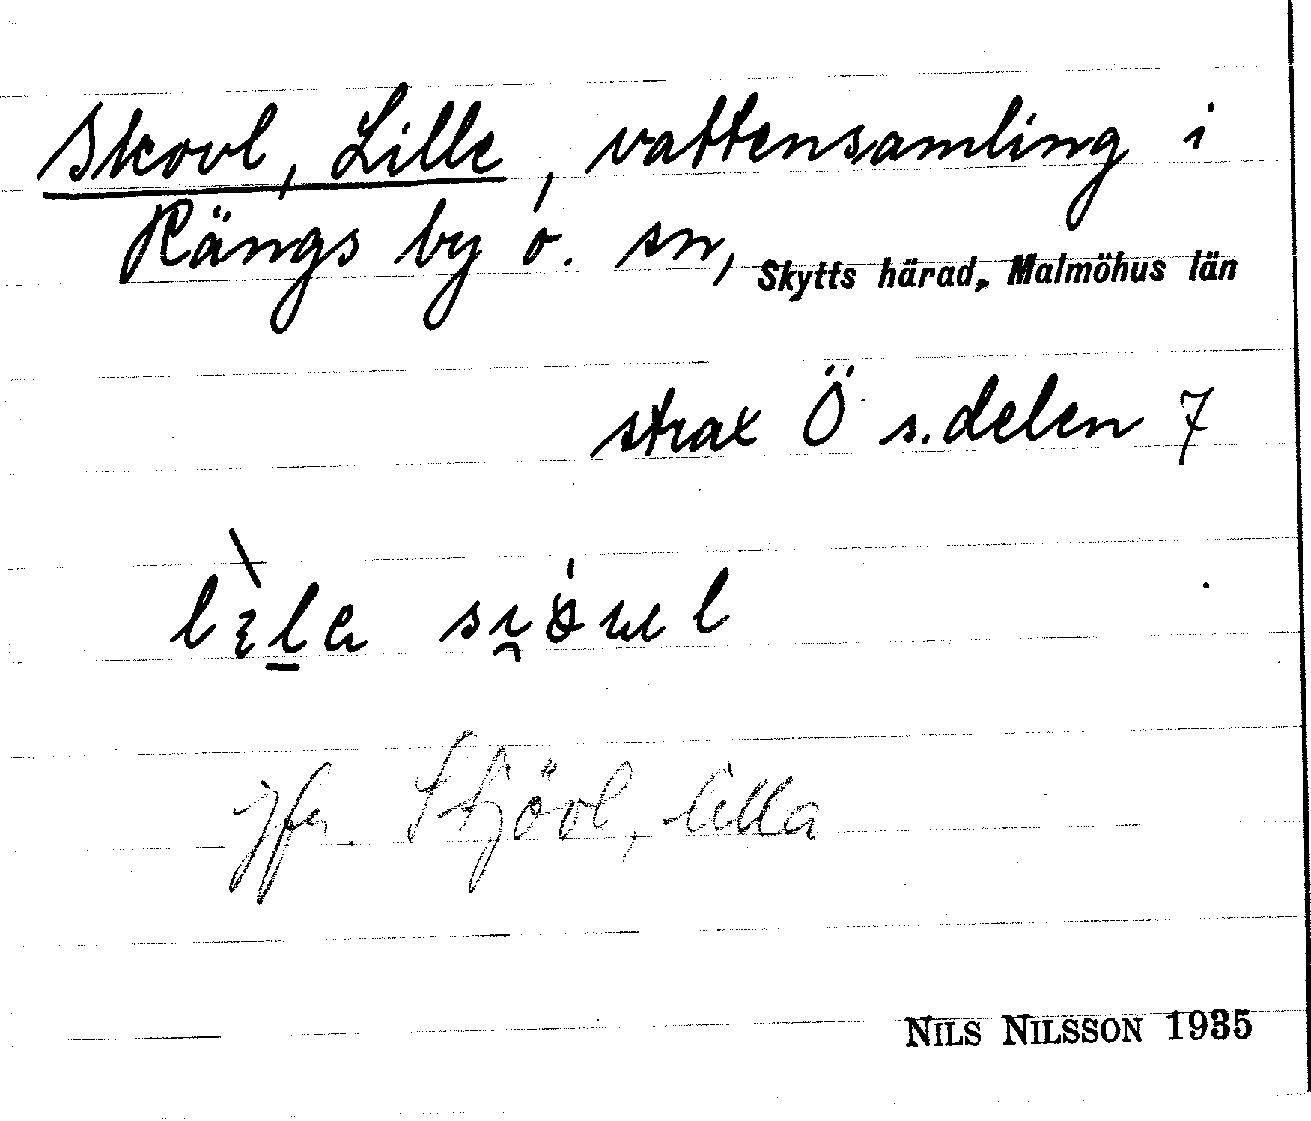 Skovl, Lille, vattensamling i
Kängs by o. sn, Skytts härad, Malmöhus län
strax Ö s.delen 7
jfr. Skjövl, lilla
NILS NILSSON 1935